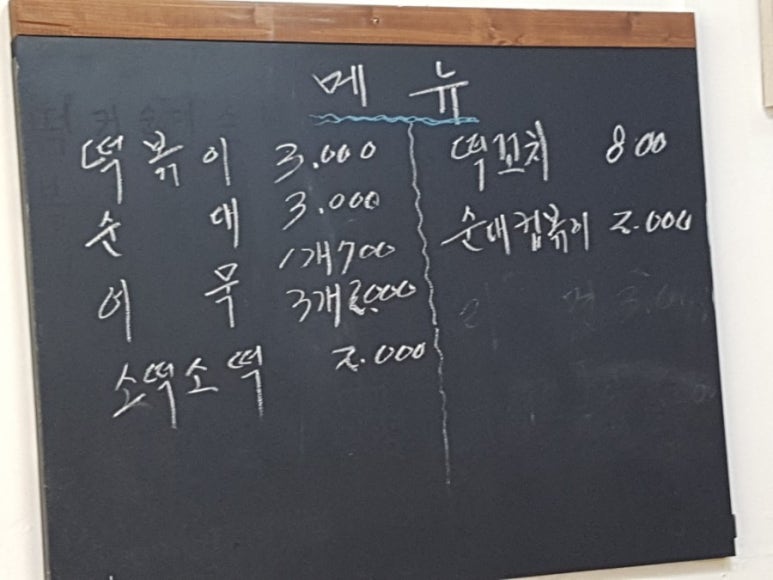 메뉴
떡볶이 3.000
순대 3.000
어묵 1개700
3개2000
소떡소떡 2.000
떡꼬치 800
순대컵볶이 2.000